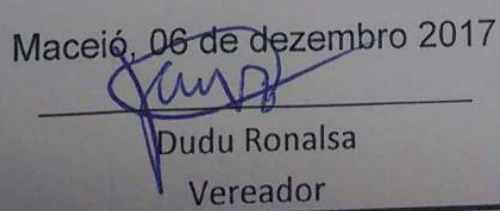 Maceió, 06 de dezembro 2017
Dudu Ronalsa
Vereador